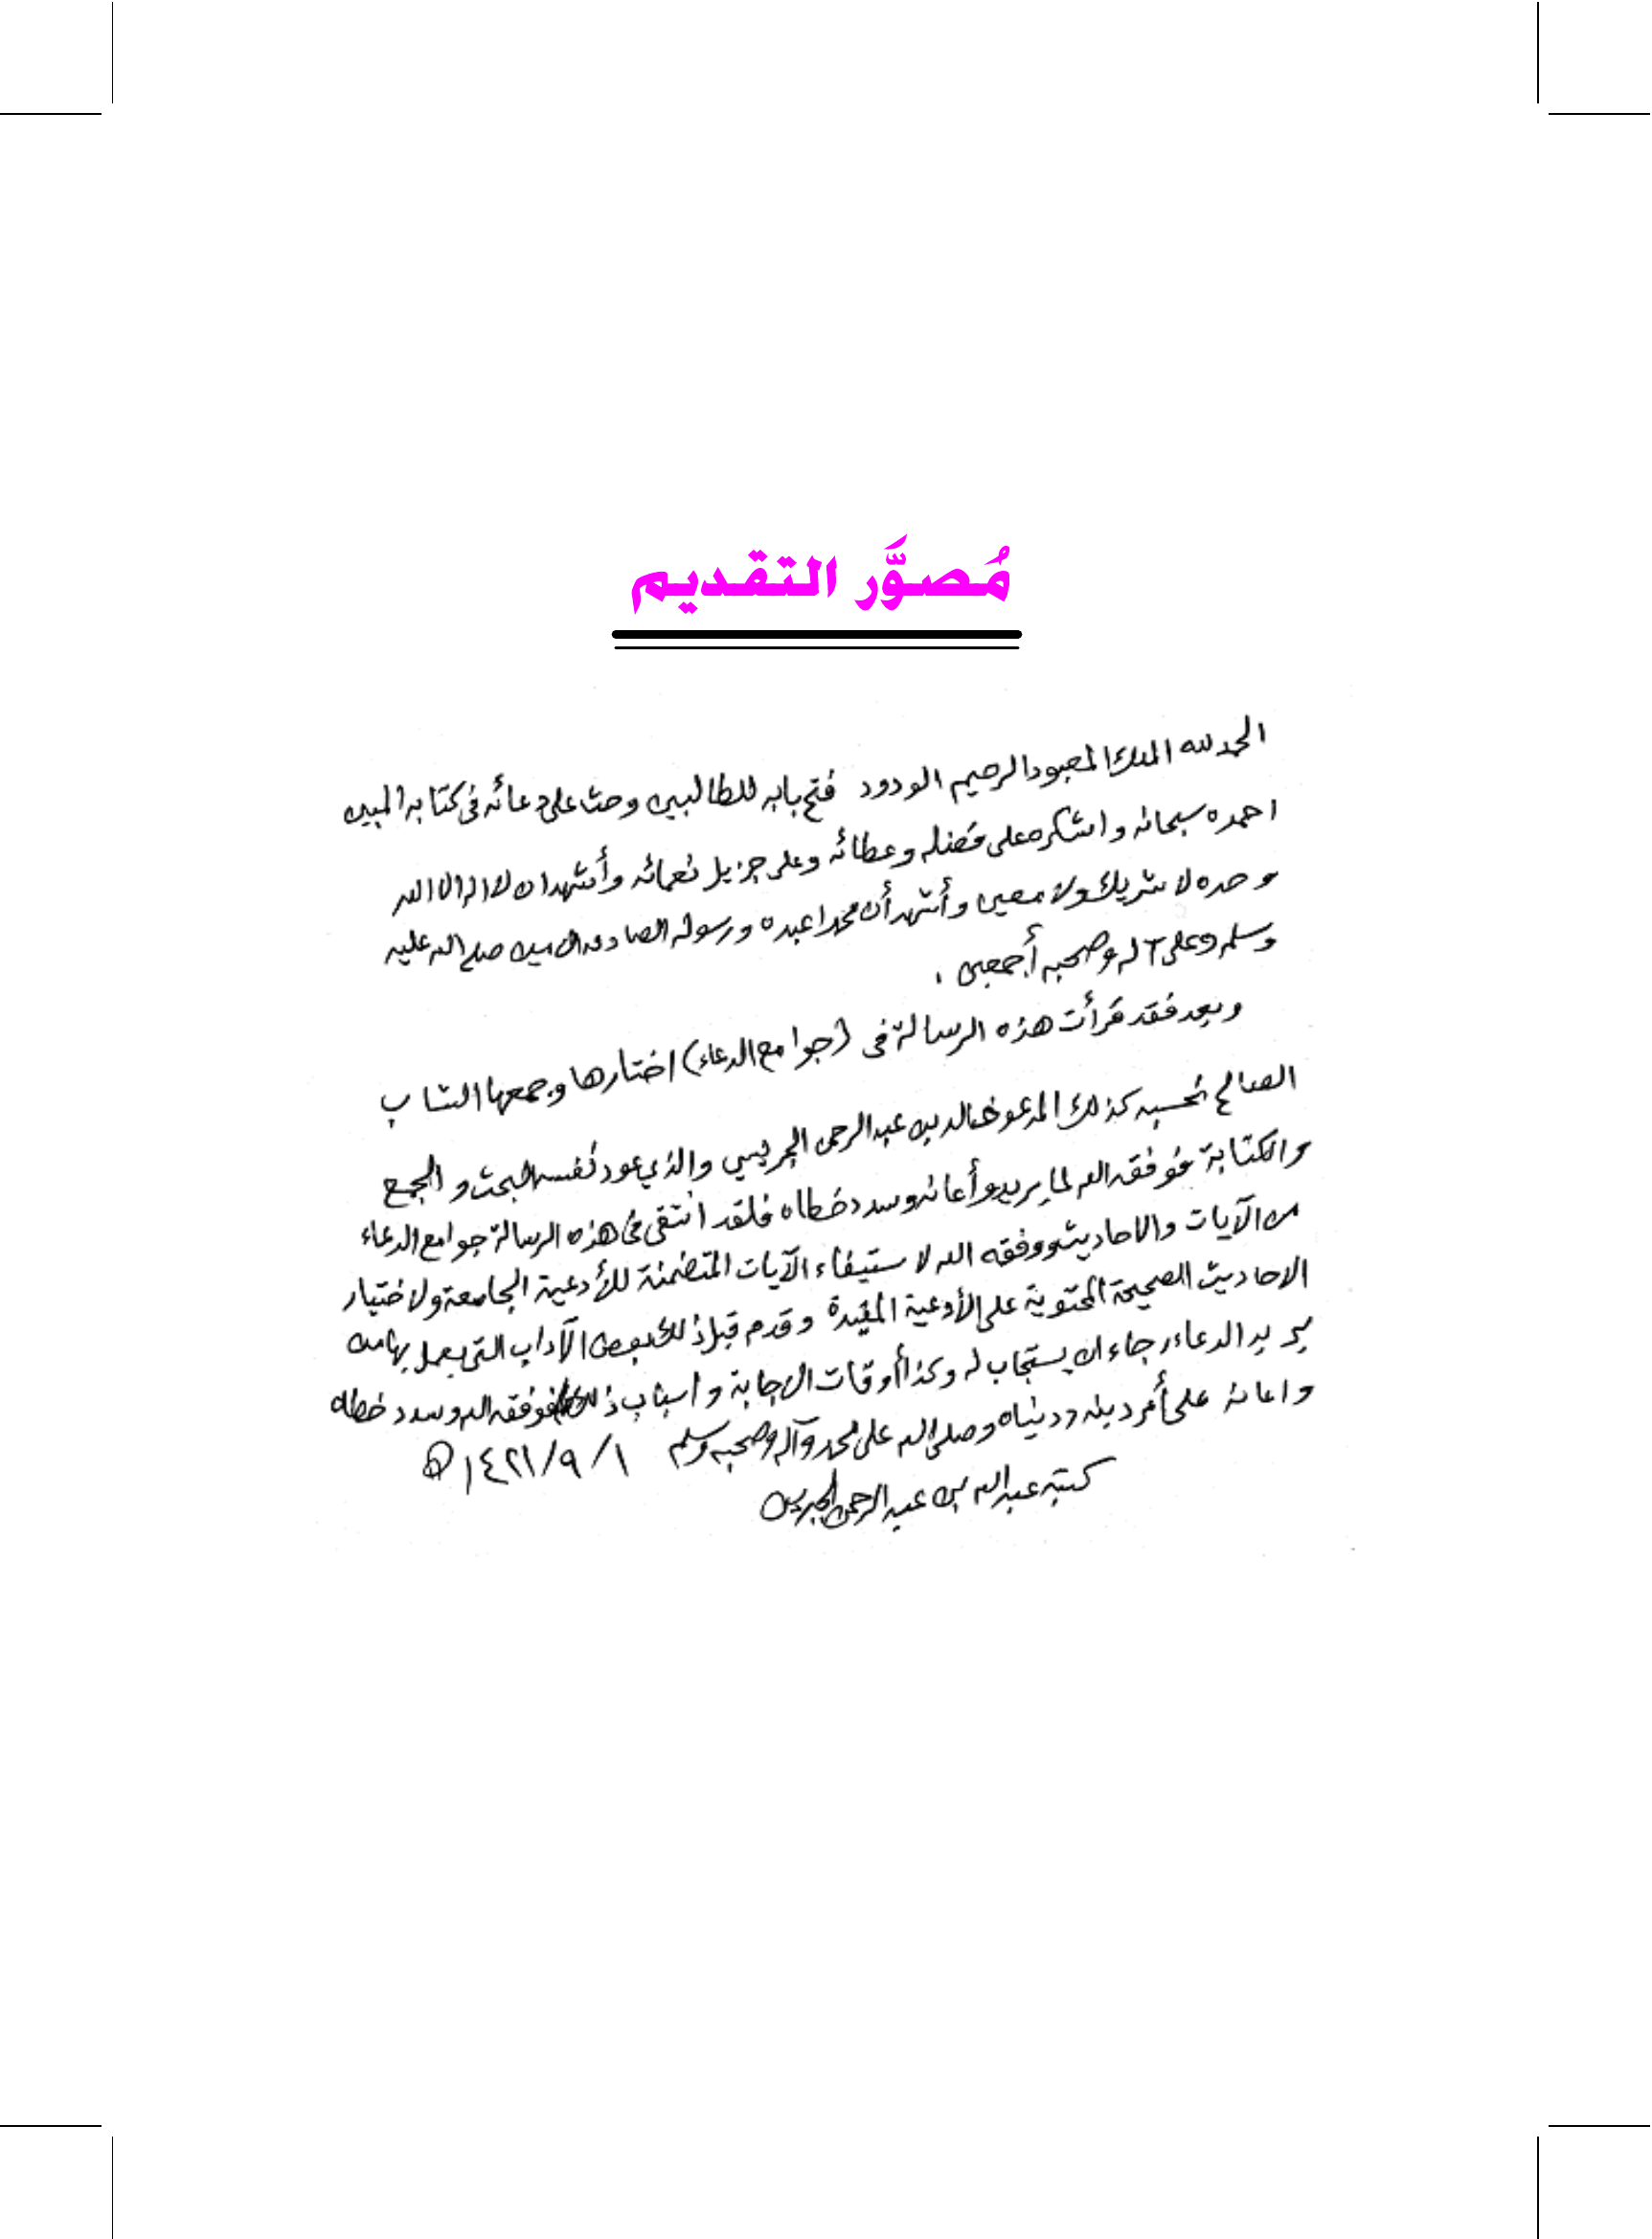 مُصوَّر التقديم
الحمد لله الملك المعبود الرحيم الودود فتح بابه للطالبين وحث على دعائه في كتابه المبين
احمده سبحانه واشكره على فضله وعطائه وعلى جزيل نعمائه وأشهد ان لا اله الا الله
وحده لا شريك ولا معين وأشهد أن محمدا عبده ورسوله الصادق الامين صلى الله عليه
وسلم وعلى آله وصحبه أجمعين .
وبعد فقد قرأت هذه الرسالة في (جوامع الدعاء) اختارها وجمعها الشاب
الصالح نحسبه كذلك المدعو خالد بن عبد الرحمن الجريسي والذي عود نفسه البحث و الجمع
والكتابة فوفقه الله لما يريد وأعانه وسدد خطاه فلقد انتقى في هذه الرسالة جوامع الدعاء
من الآيات والاحاديث ووفقه الله لاستيفاء الآيات المتضمنة للأدعية الجامعة ولاختيار
الاحاديث الصحيحة المحتوية على الأدعية المفيدة وقدم قبل ذلك بعض الآداب التي يعمل بها من
يريد الدعاء رجاء ان يستجاب له وكذا أوقات الاجابة واسباب ذلك فوفقه الله وسدد خطاه
واعانه على أمر دينه ودنياه وصلى الله على محمد وآله وصحبه وسلم ١ / ٩ / ١٤٢١ هـ
كتبه عبد الله بن عبد الرحمن الجبرين